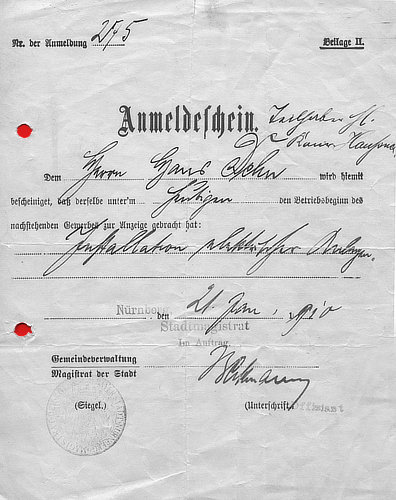 Nr. der Anmeldung 275
Beilage II.
Anmeldeschein.
Teilhaber H.
Dem Herrn Hans Dehn wird hiemit
bescheiniget, daß derselbe unter'm heutigen den Betriebsbeginn des
nachstehenden Gewerbes zur Anzeige gebracht hat:
Installation elektrischer Anlagen.
Nürnberg, den 21. Jan. 1910
Stadtmagistrat
Im Auftrag
Gemeindeverwaltung
Magistrat der Stadt
(Siegel.) (Unterschrift.) Offiziant